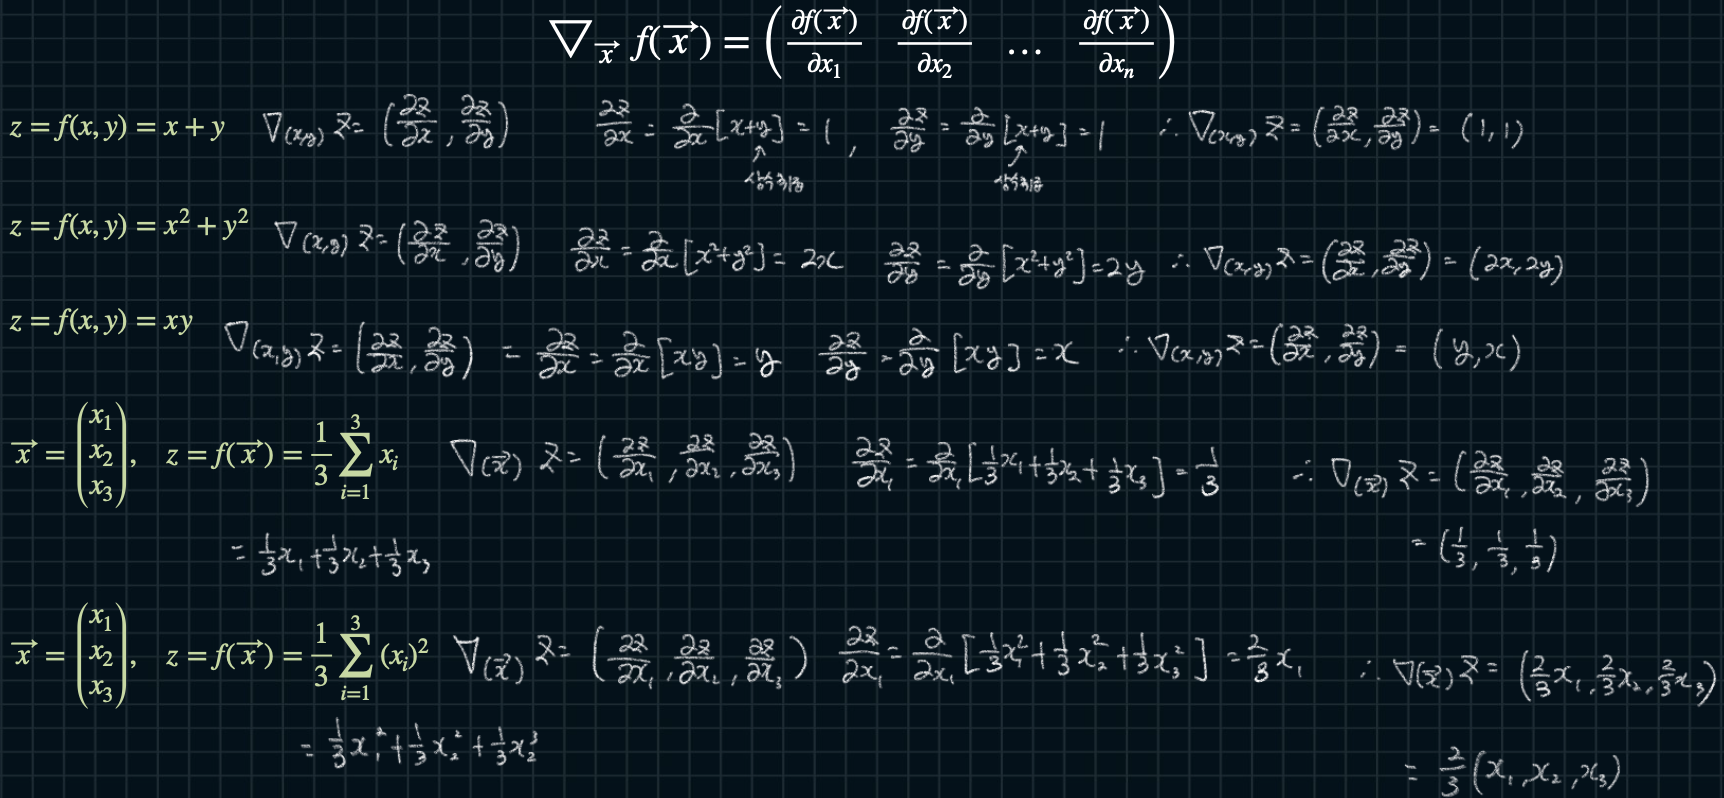 ∇_x⃗ f(x⃗) = (∂f(x⃗)/∂x₁ ∂f(x⃗)/∂x₂ ... ∂f(x⃗)/∂xₙ)
z = f(x, y) = x + y ∇(x,y) z = (∂z/∂x, ∂z/∂y) ∂z/∂x = ∂/∂x [x+y] = 1, ∂z/∂y = ∂/∂y [x+y] = 1 ∴ ∇(x,y) z = (∂z/∂x, ∂z/∂y) = (1, 1)
↑ 상수취급 ↑ 상수취급
z = f(x, y) = x² + y² ∇(x,y) z = (∂z/∂x, ∂z/∂y) ∂z/∂x = ∂/∂x [x²+y²] = 2x ∂z/∂y = ∂/∂y [x²+y²] = 2y ∴ ∇(x,y) z = (∂z/∂x, ∂z/∂y) = (2x, 2y)
z = f(x, y) = xy ∇(x,y) z = (∂z/∂x, ∂z/∂y) = ∂z/∂x = ∂/∂x [xy] = y ∂z/∂y = ∂/∂y [xy] = x ∴ ∇(x,y) z = (∂z/∂x, ∂z/∂y) = (y, x)
x⃗ = (x₁ x₂ x₃), z = f(x⃗) = 1/3 ∑_{i=1}^{3} xᵢ ∇(x⃗) z = (∂z/∂x₁, ∂z/∂x₂, ∂z/∂x₃) ∂z/∂x₁ = ∂/∂x₁ [1/3 x₁ + 1/3 x₂ + 1/3 x₃] = 1/3 ∴ ∇(x⃗) z = (∂z/∂x₁, ∂z/∂x₂, ∂z/∂x₃)
= 1/3 x₁ + 1/3 x₂ + 1/3 x₃ = (1/3, 1/3, 1/3)
x⃗ = (x₁ x₂ x₃), z = f(x⃗) = 1/3 ∑_{i=1}^{3} (xᵢ)² ∇(x⃗) z = (∂z/∂x₁, ∂z/∂x₂, ∂z/∂x₃) ∂z/∂x₁ = ∂/∂x₁ [1/3 x₁² + 1/3 x₂² + 1/3 x₃²] = 2/3 x₁ ∴ ∇(x⃗) z = (2/3 x₁, 2/3 x₂, 2/3 x₃)
= 1/3 x₁² + 1/3 x₂² + 1/3 x₂³ = 2/3 (x₁, x₂, x₃)